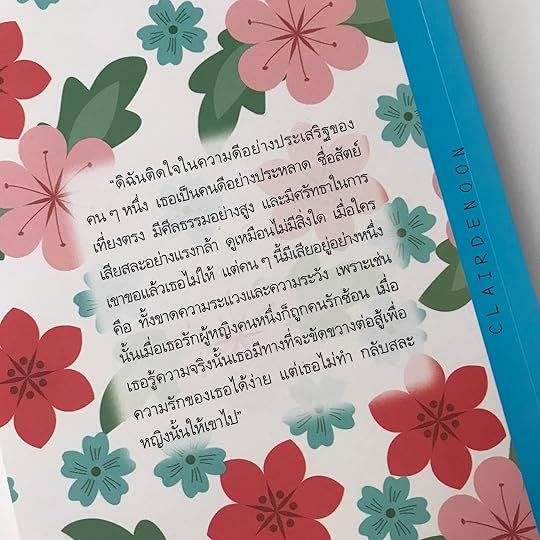 “ดิฉันติดใจในความดีอย่างประเสริฐของ
คน ๆ หนึ่ง เธอเป็นคนดีอย่างประหลาด ซื่อสัตย์
เที่ยงตรง มีศีลธรรมอย่างสูง และมีศรัทธาในการ
เสียสละอย่างแรงกล้า ดูเหมือนไม่มีสิ่งใด เมื่อใคร
เขาขอแล้วเธอไม่ให้ แต่คน ๆ นี้มีเสียอยู่อย่างหนึ่ง
คือ ทั้งขาดความระแวงและความระวัง เพราะเช่น
นั้นเมื่อเธอรักผู้หญิงคนหนึ่งก็ถูกคนรักซ้อน เมื่อ
เธอรู้ความจริงนั้นเธอมีทางที่จะขัดขวางต่อสู้เพื่อ
ความรักของเธอได้ง่าย แต่เธอไม่ทำ กลับสละ
หญิงนั้นให้เขาไป”
CLAIRDENOON